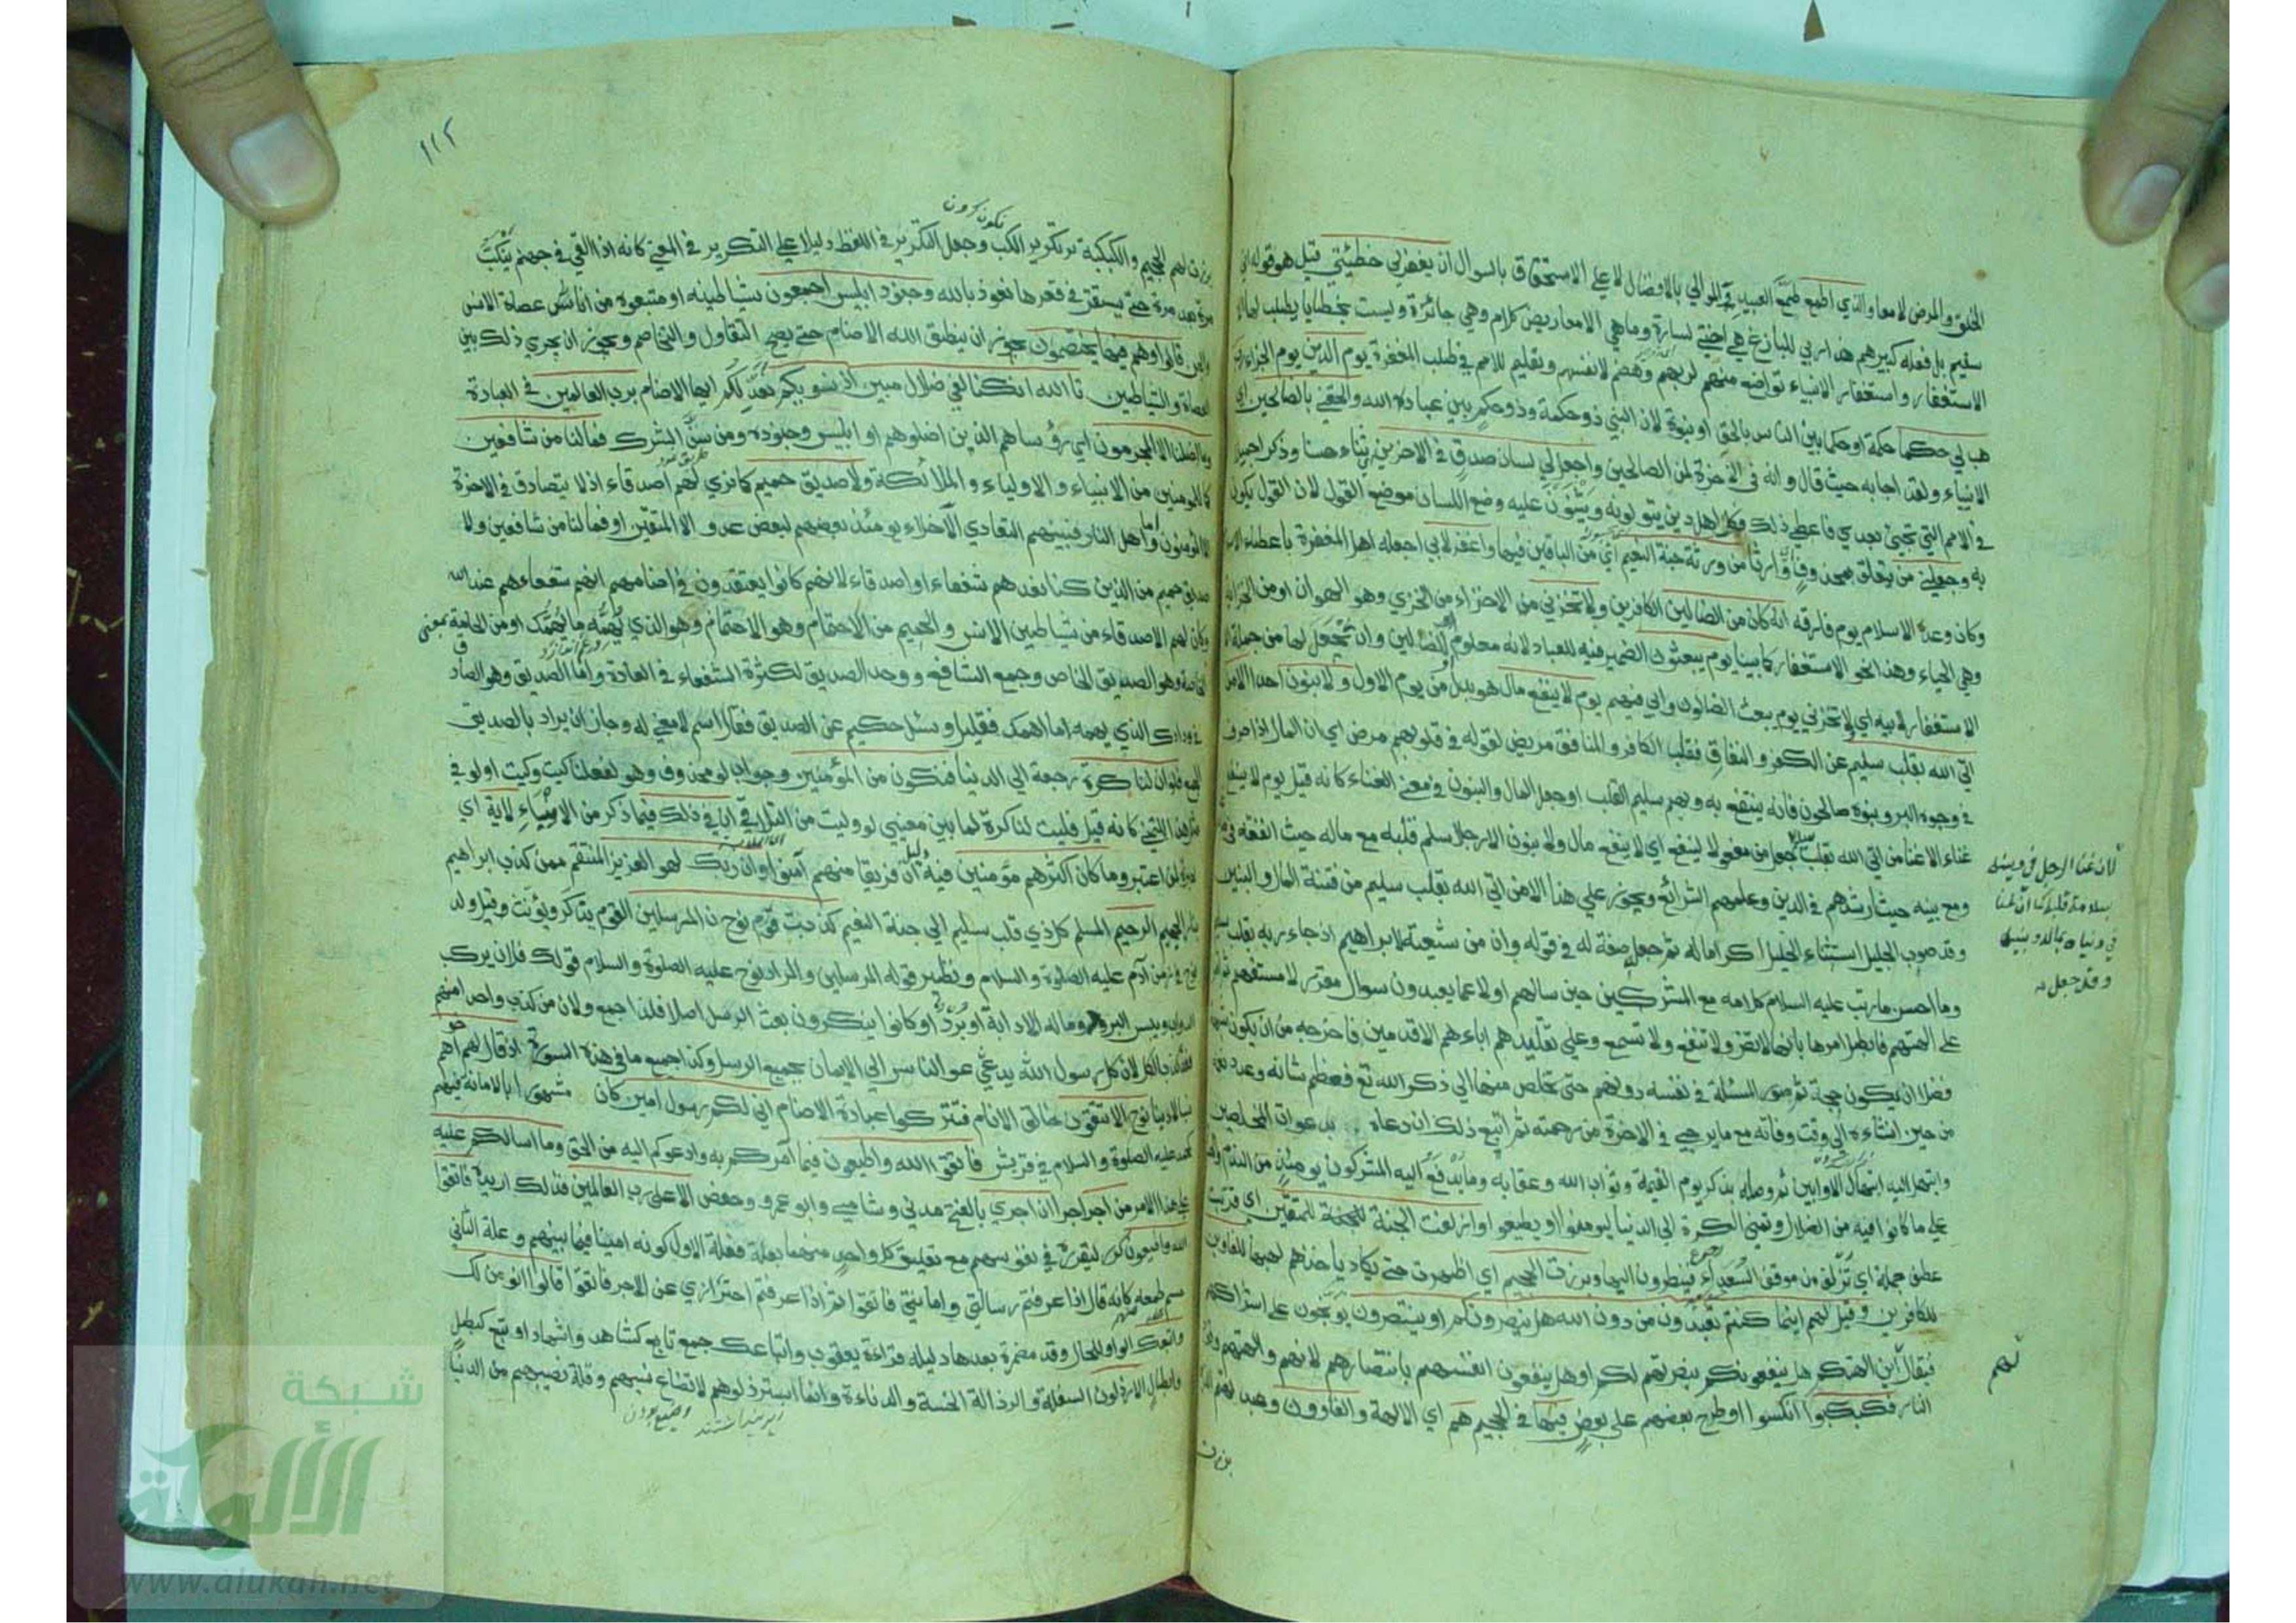 الخلق والمرض لا معا والذي اطمع طمع العبيد في الموالي بالافضال لا على الاستحقاق بالسوال ان يغفر لي خطيئتي قيل هو قوله اني
سقيم بل فعله كبيرهم هذا ربي للبازغ هي اختي لسارة وما هي الا معاريض كلام وهي جائزة وليست بخطايا يطلب لها
الاستغفار واستغفار الانبياء تواضع منهم لربهم وهضم لانفسهم وتعليم للامم في طلب المغفرة يوم الدين يوم الجزاء
هب لي حكما حكمة او حكما بين الناس بالحق او نبوة لان النبي ذو حكمة وذو حكم بين عباد الله والحقني بالصالحين اي
الانبياء ولقد اجابه حيث قال وانه في الاخرة لمن الصالحين واجعل لي لسان صدق في الاخرين ثناء حسنا وذكرا جميلا
في الامم التي تجيئ بعدي فاعطي ذلك فكل اهل دين يتولونه ويثنون عليه وضع اللسان موضع القول لان القول يكون
به واجعلني من يتعلق بمحذوف اي وارثا من ورثة جنة النعيم اي من الباقين فيها واغفر لابي اجعله اهل المغفرة باعطاء الاسلام
وكان وعده الاسلام يوم فارقه انه كان من الضالين الكافرين ولا تخزني من الاخزاء من الخزي وهو الهوان او من الخزاية
وهي الحياء وهذا نحو الاستغفار كما بينا يوم يبعثون الضمير فيه للعباد لانه معلوم او للضالين وان يجعل لها من جملة
الاستغفار لابيه اي لا تخزني يوم يبعث الضالون وابي فيهم يوم لا ينفع مال هو بدل من يوم الاول ولا بنون احدا الا من
اتى الله بقلب سليم عن الكفر والنفاق فقلب الكافر والمنافق مريض لقوله في قلوبهم مرض اي ان المال اذا صرف
في وجوه البر وبنوه صالحون فانه ينتفع به وبهم سليم القلب او جعل المال والبنون في معنى الغناء كانه قيل يوم لا ينفع
غناء الا غنا من اتى الله بقلب سليم جعل من مفعولا لينفع اي لا ينفع مال ولا بنون الا رجلا سلم قلبه مع ماله حيث انفقه في
ومع بنيه حيث ارشدهم في الدين وعلمهم الشرائع ويجوز على هذا الا من اتى الله بقلب سليم من فتنة المال والبنين
وقد صوب الجليل استثناء الخليل اكراما له ثم جعله صفة له في قوله وان من شيعته لابراهيم اذ جاء ربه بقلب سليم
وما احسن ما رتب عليه السلام كلامه مع المشركين حين سالهم اولا عما يعبدون سوال مقرر لا مستفهم ثم
على الهتهم فابطل امرها بانها لا تضر ولا تنفع ولا تسمع وعلى تقليدهم اباءهم الاقدمين فاخرجه من ان يكون شبهة
فضلا ان يكون حجة ثم صور المسئلة في نفسه دونهم حتى تخلص منها الى ذكر الله تع فعظم شانه وعدد نعمه
من حين انشاءه الى وقت وفاته مع ما يرجى في الاخرة من رحمته ثم اتبع ذلك ان دعاه بدعوات المخلصين
وابتهل اليه ابتهال الاوابين ثم وصله بذكر يوم القيمة وثواب الله وعقابه وما يدفع اليه المشركون يومئذ من الندم
على ما كانوا فيه من الضلال وتمني الكرة الى الدنيا ليومنوا او يطيعوا وازلفت الجنة للمتقين اي قربت
عطف جملة اي تزلف من موقف السعداء فينظرون اليها وبرزت الجحيم اي اظهرت حتى يكاد ياخذهم لهبها للغاوين
للكافرين وقيل لهم اينما كنتم تعبدون من دون الله هل ينصرونكم او ينتصرون يوبخون على اشراكهم
فيقال اين الهتكم هل ينفعونكم بنصرتهم لكم او هل ينفعون انفسهم بانتصارهم لانهم والهتهم وقود
النار فكبكبوا انكسوا او طرح بعضهم على بعض فيها في الجحيم هم اي الالهة والغاوون وعبدتهم الذين
برزت
لان غنا الرجل في دينه
بسلامة قلبه كما ان غنا
في دنياه بماله وبنيه
وقد جعل
لهم
١١٢
برزت لهم الجحيم والكبكبة تكرير الكب وجعل التكرير في اللفظ دليلا على التكرير في المعنى كانه اذا القي في جهنم ينكب
مرة بعد مرة حتى يستقر في قعرها نعوذ بالله وجنود ابليس اجمعون شياطينه او متبعوه من عصاة الانس
والجن قالوا وهم فيها يختصمون يجوز ان ينطق الله الاصنام حتى يصح التقاول والتخاصم ويجوز ان يجري ذلك بين
العصاة والشياطين تا الله ان كنا لفي ضلال مبين اذ نسويكم نعدلكم ايها الاصنام برب العالمين في العبادة
وما اضلنا الا المجرمون اي رؤساهم الذين اضلوهم او ابليس وجنوده ومن سن الشرك فما لنا من شافعين
كما للمومنين من الانبياء والاولياء والملائكة ولا صديق حميم كما نرى لهم اصدقاء اذ لا يتصادق في الاخرة
الا المومنون واما اهل النار فبينهم التعادي الاخلاء يومئذ بعضهم لبعض عدو الا المتقين او فما لنا من شافعين ولا
صديق حميم من الذين كنا نعدهم شفعاء او اصدقاء لانهم كانوا يعتقدون في اصنامهم انهم شفعاءهم عند الله
وكان لهم الاصدقاء من شياطين الانس والحميم من الاحتمام وهو الاهتمام وهو الذي يهمه ما يهمك او من الحامة بمعنى
الخاصة وهو الصديق الخاص وجمع الشافع ووحد الصديق لكثرة الشفعاء في العادة واما الصديق وهو الصادق
في ودادك الذي يهمه ما اهمك فقليل وسئل حكيم عن الصديق فقال اسم لا معنى له وجاز ان يراد بالصديق
الجمع فلو ان لنا كرة رجعة الى الدنيا فنكون من المؤمنين وجواب لو محذوف وهو لفعلنا كيت وكيت او لو في
مثل هذا التمني كانه قيل فليت لنا كرة لما بين معنى لو وليت من التلاقي ان في ذلك فيما ذكر من الانبياء لاية اي
لعبرة لمن اعتبر وما كان اكثرهم مؤمنين فيه دليل ان فريقا منهم آمنوا وان ربك لهو العزيز المنتقم ممن كذب ابراهيم
بنار الجحيم الرحيم المسلم كل ذي قلب سليم الى جنة النعيم كذبت قوم نوح ن المرسلين القوم يذكر ويؤنث وقيل ولد
نوح في زمن آدم عليه الصلوة والسلام ونظير قوله المرسلين والمراد نوح عليه الصلوة والسلام قولك فلان يركب
الدواب ويلبس البرود وما له الا دابة او برد او كانوا ينكرون بعث الرسل اصلا فلذا جمع ولان من كذب واحدا منهم
فقد كذب الكل لان كل رسول الله يدعو الناس الى الايمان بجميع الرسل وكذا جميع ما في هذه السورة اذ قال لهم اخوهم
نسبا لا دينا نوح الا تتقون خالق الانام فتتركوا عبادة الاصنام اني لكم رسول امين كان مشهورا بالامانة فيهم
كمحمد عليه الصلوة والسلام في قريش فاتقوا الله واطيعون فيما آمركم به وادعوكم اليه من الحق وما اسالكم عليه
على هذا الامر من اجر اجرا ان اجري بالفتح مدني وشامي وابو عمرو وحفص الا على رب العالمين فذلك اريد فاتقوا
الله واطيعون كرر ليقرره في نفوسهم مع تعليق كل واحد منهما بعلة فعلة الاول كونه امينا فيما بينهم وعلة الثاني
حسم طمعه كانه قال اذا عرفتم رسالتي وامانتي فاتقوا ثم اذا عرفتم احترازي عن الاجر فاتقوا قالوا انومن لك
واتبعك الواو للحال وقد مضمرة بعدها دليله قراءة يعقوب واتباعك جمع تابع كشاهد واشهاد او تبع كبطل
وابطال الارذلون السفلة والرذالة الخسة والدناءة وانما استرذلوهم لاتضاع نسبهم وقلة نصيبهم من الدنيا
شبكة
الألوكة
www.alukah.net